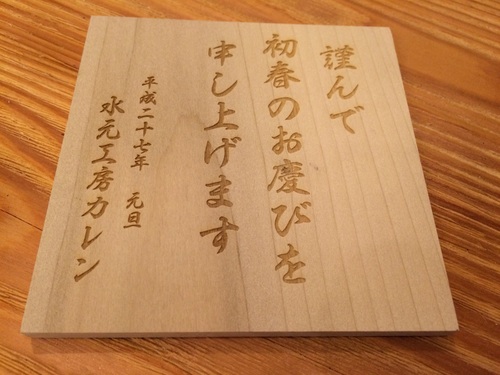 謹んで
初春のお慶びを
申し上げます
平成二十七年 元旦
水元工房カレン